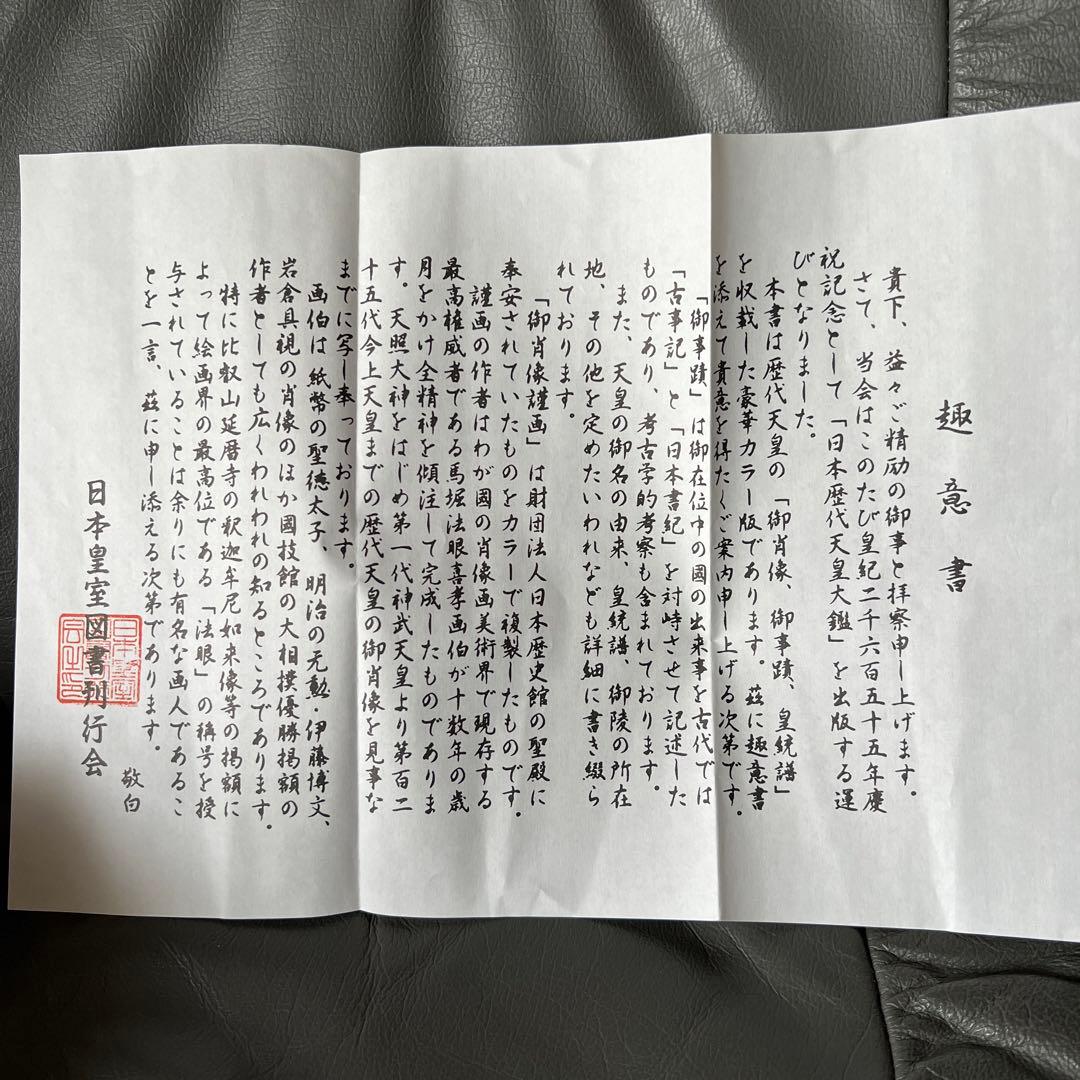 趣意書
貴下、益々ご精励の御事と拝察申し上げます。
さて、当会はこのたび皇紀二千六百五十五年慶
祝記念として「日本歴代天皇大鑑」を出版する運
びとなりました。
本書は歴代天皇の「御肖像、御事蹟、皇統譜」
を収載した豪華カラー版であります。茲に趣意書
を添えて貴意を得たくご案内申し上げる次第です。
「御事蹟」は御在位中の國の出来事を古代では
「古事記」と「日本書紀」を対峙させて記述した
ものであり、考古学的考察も含まれております。
また、天皇の御名の由来、皇統譜、御陵の所在
地、その他を定めたいわれなども詳細に書き綴ら
れております。
「御肖像謹画」は財団法人日本歴史館の聖殿に
奉安されていたものをカラーで複製したものです。
謹画の作者はわが國の肖像画美術界で現存する
最高権威者である馬堀法眼喜孝画伯が十数年の歳
月をかけ全精神を傾注して完成したものでありま
す。天照大神をはじめ第一代神武天皇より第百二
十五代今上天皇までの歴代天皇の御肖像を見事な
までに写し奉っております。
画伯は紙幣の聖徳太子、明治の元勲・伊藤博文、
岩倉具視の肖像のほか國技館の大相撲優勝掲額の
作者としても広くわれわれの知るところであります。
特に比叡山延暦寺の釈迦牟尼如来像等の掲額に
よって絵画界の最高位である「法眼」の称号を授
与されていることは余りにも有名な画人であるこ
とを一言、茲に申し添える次第であります。
敬白
日本皇室図書刊行会